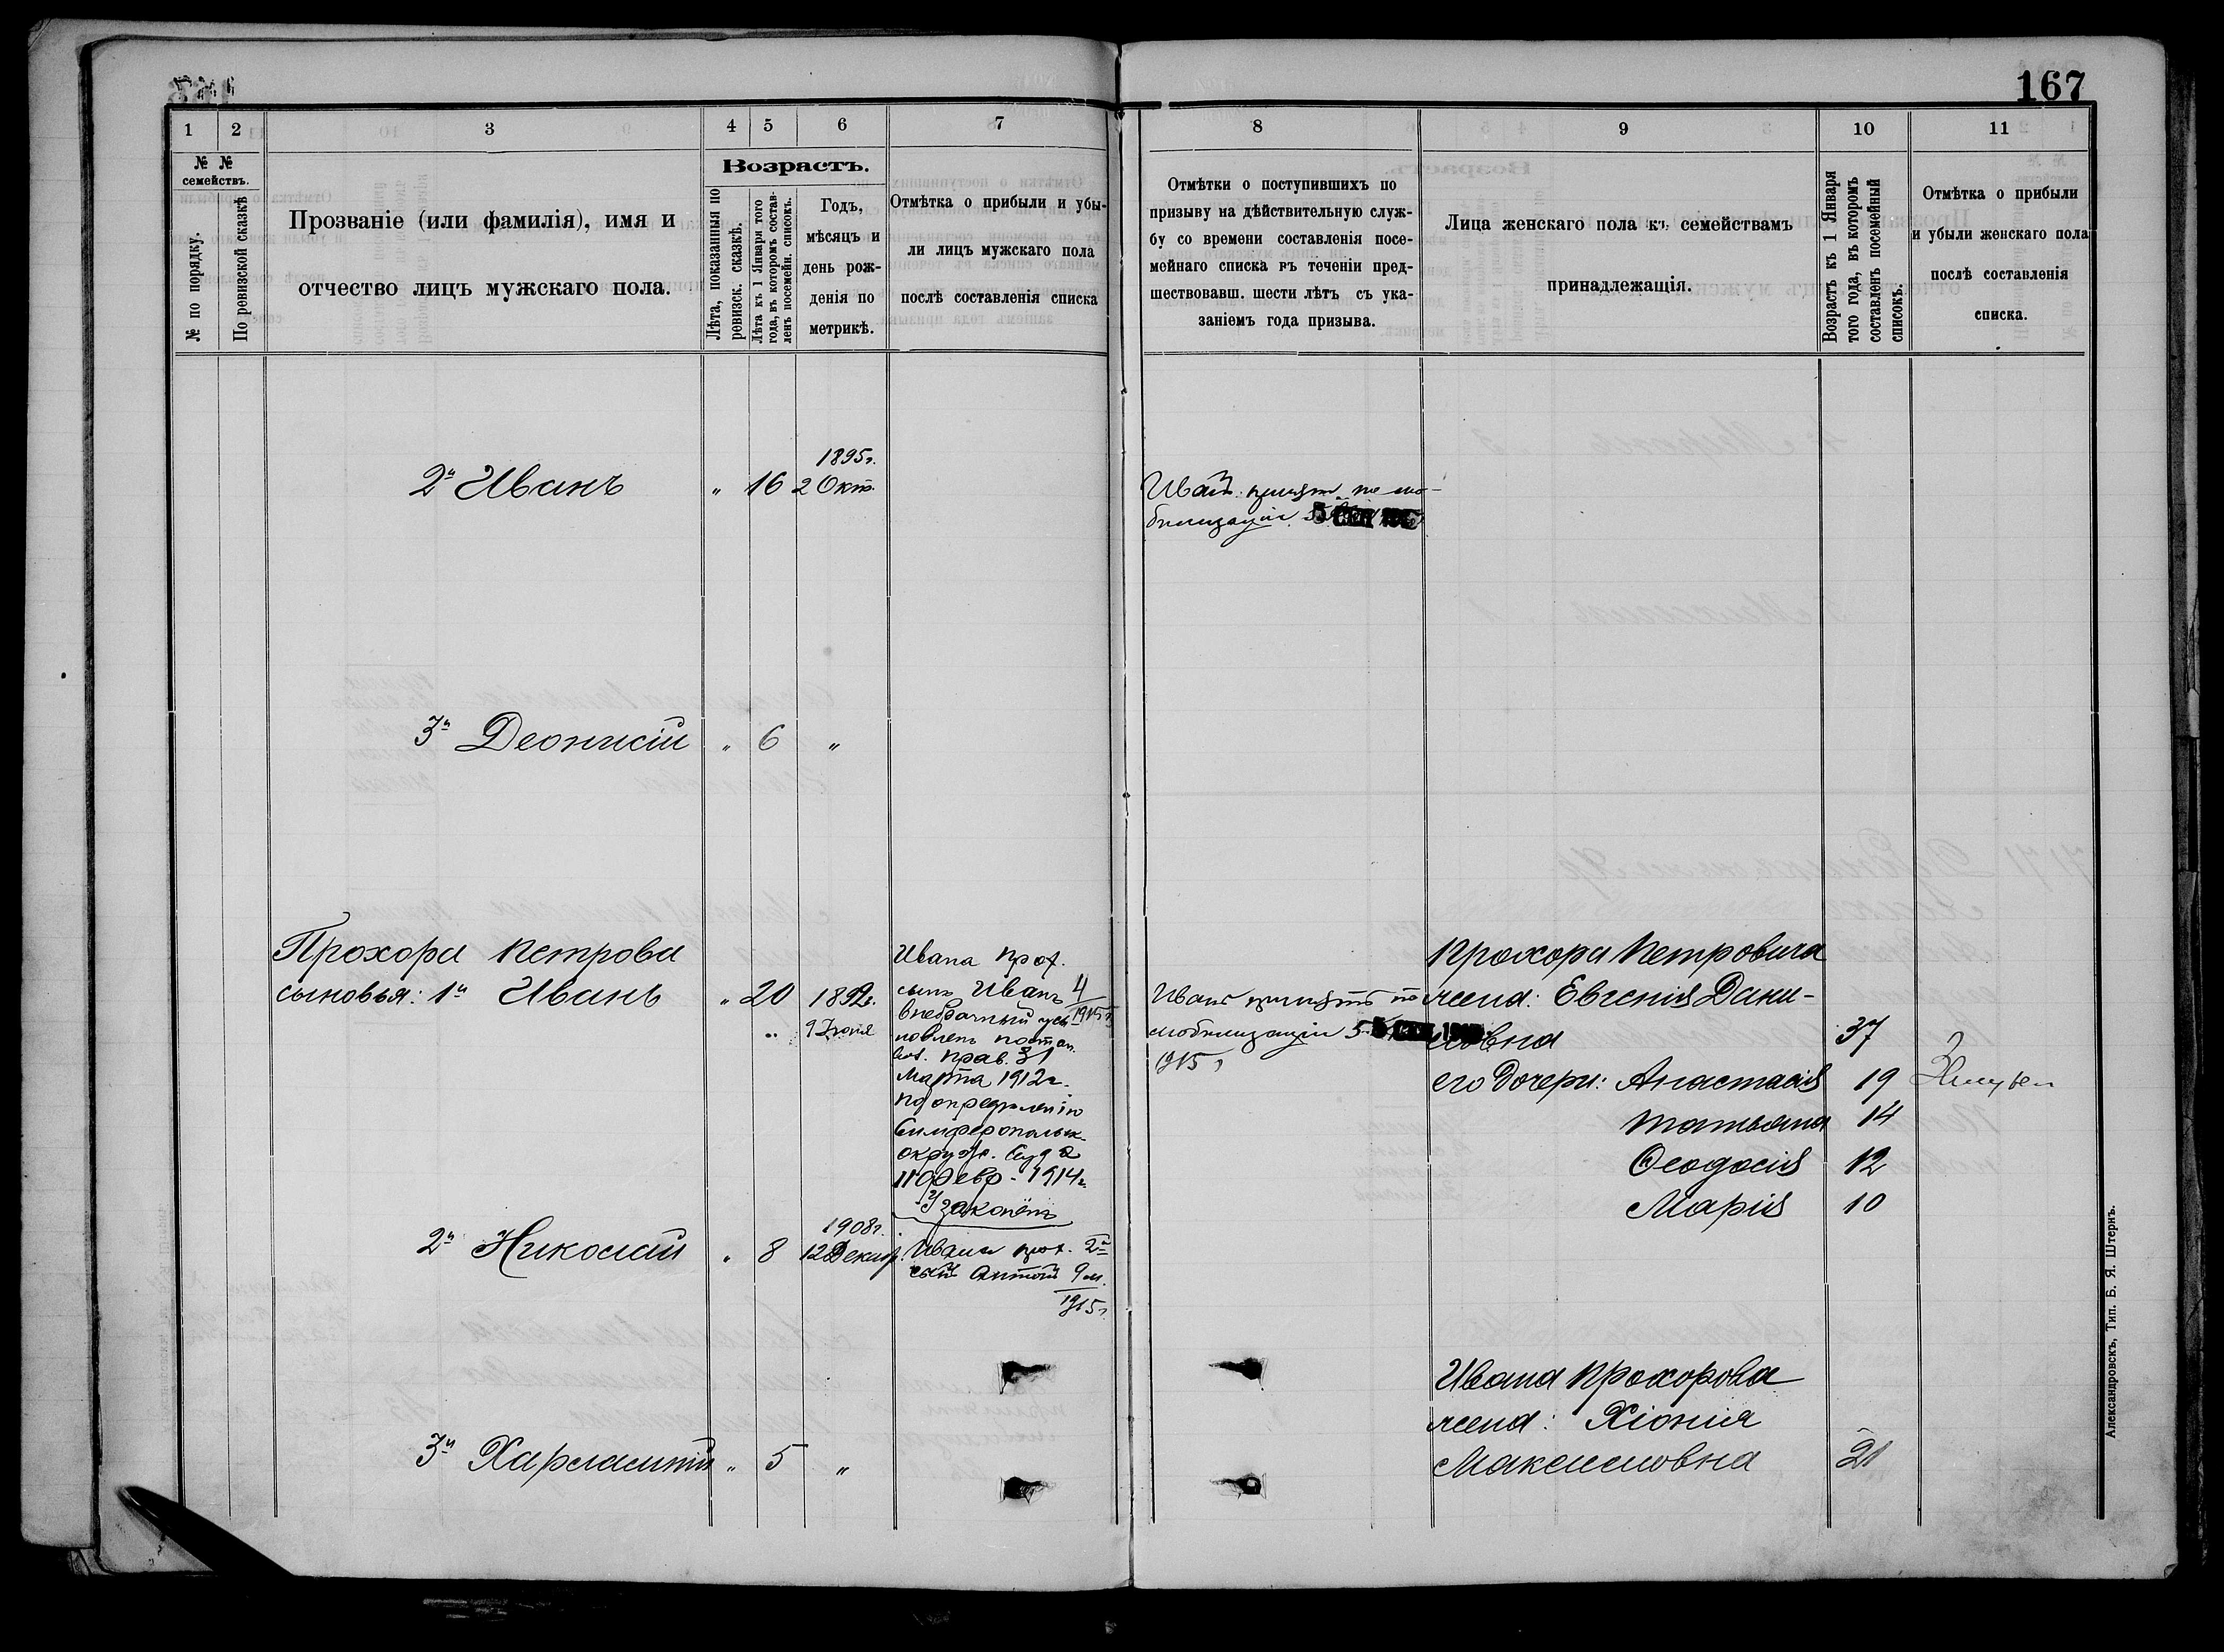 167
1 2 3 4 5 6 7
№ №
семействъ.
№ по порядку.
По ревизской сказкѣ
Прозваніе (или фамилія), имя и
отчество лицъ мужскаго пола.
Возрастъ.
Лѣта, показанныя по
ревизск. сказкѣ.
Лѣта къ 1 Января того
года, въ которомъ состав-
ленъ посемейн. списокъ.
Годъ,
мѣсяцъ и
день рож-
денія по
метрикѣ.
Отмѣтка о прибыли и убы-
ли лицъ мужскаго пола
послѣ составленія списка
2й Иванъ " 16
1895г.
2 Окт.
3й Деонисій " 6 "
Прохора Петрова
сыновья: 1й Иванъ " 20 1892г.
" 9 Іюня
Ивана Прох.
сынъ Иванъ 4/1915г.
внебрачный усы
новленъ постан.
вол. прав. 31
Марта 1912г.
По опредѣленію
Симферопольск.
окруж. Суда
11 Февр. 1914г.
Узаконенъ
2й Николай " 8
1908г.
12 Декаб.
Ивана прох. 2й
сынъ Антонъ 9 м.
1915г.
3й Харлампій " 5 "
8 9 10 11
Отмѣтки о поступившихъ по
призыву на дѣйствительную служ-
бу со времени составленія посе-
мейнаго списка въ теченіи пред-
шествовавш. шести лѣтъ съ ука-
заніемъ года призыва.
Лица женскаго пола къ семействамъ
принадлежащія.
Возрастъ къ 1 Января
того года, въ которомъ
составленъ посемейный
списокъ.
Отмѣтка о прибыли
и убыли женскаго пола
послѣ составленія
списка.
Иванъ принятъ по мо-
билизаціи 5 СЕН
Иванъ принятъ по
мобилизаціи 5 СЕН
1915 г
Прохора Петровича
жена: Евгенія Дани-
ловна 37
его дочери: Анастасія 19
Татьяна 14
Ѳеодосія 12
Марія 10
Ивана Прохорова
жена: Хіонія
Максимовна 21
Александровскъ, Тип. Б. Я. Штернъ.